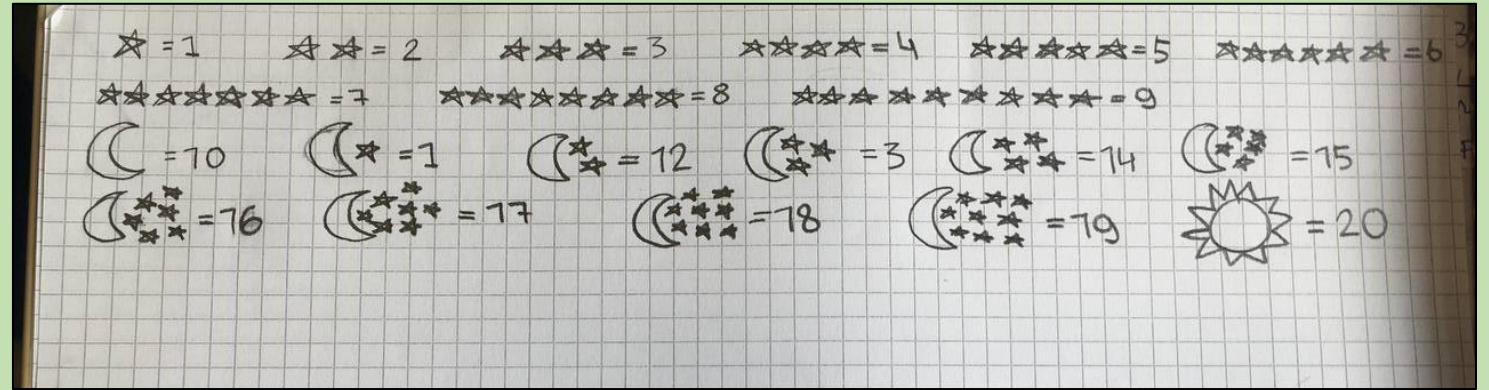 ☆ =1 ☆☆= 2 ☆☆☆=3 ☆☆☆☆=4 ☆☆☆☆☆=5 ☆☆☆☆☆☆=6
☆☆☆☆☆☆☆=7 ☆☆☆☆☆☆☆☆=8 ☆☆☆☆☆☆☆☆☆=9
☾ =10 ☾☆ =1 ☾☆☆ = 12 ☾☆☆☆ =3 ☾☆☆☆☆ =14 ☾☆☆☆☆☆ =15
☾☆☆☆☆☆☆ =16 ☾☆☆☆☆☆☆☆ = 17 ☾☆☆☆☆☆☆☆☆ =18 ☾☆☆☆☆☆☆☆☆☆ =19 ☼ = 20